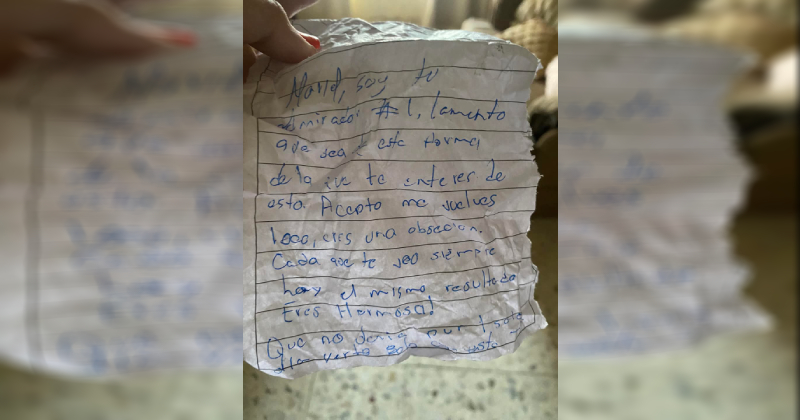 soy tu
Admirador #1, lamento
que sea esta forma
de la que te enteres de
esto. Acepto me vuelves
loco, eres una obsecion.
Cada que te veo siempre
hay el mismo resultado
Eres Hermosa!
Que no por 1 solo